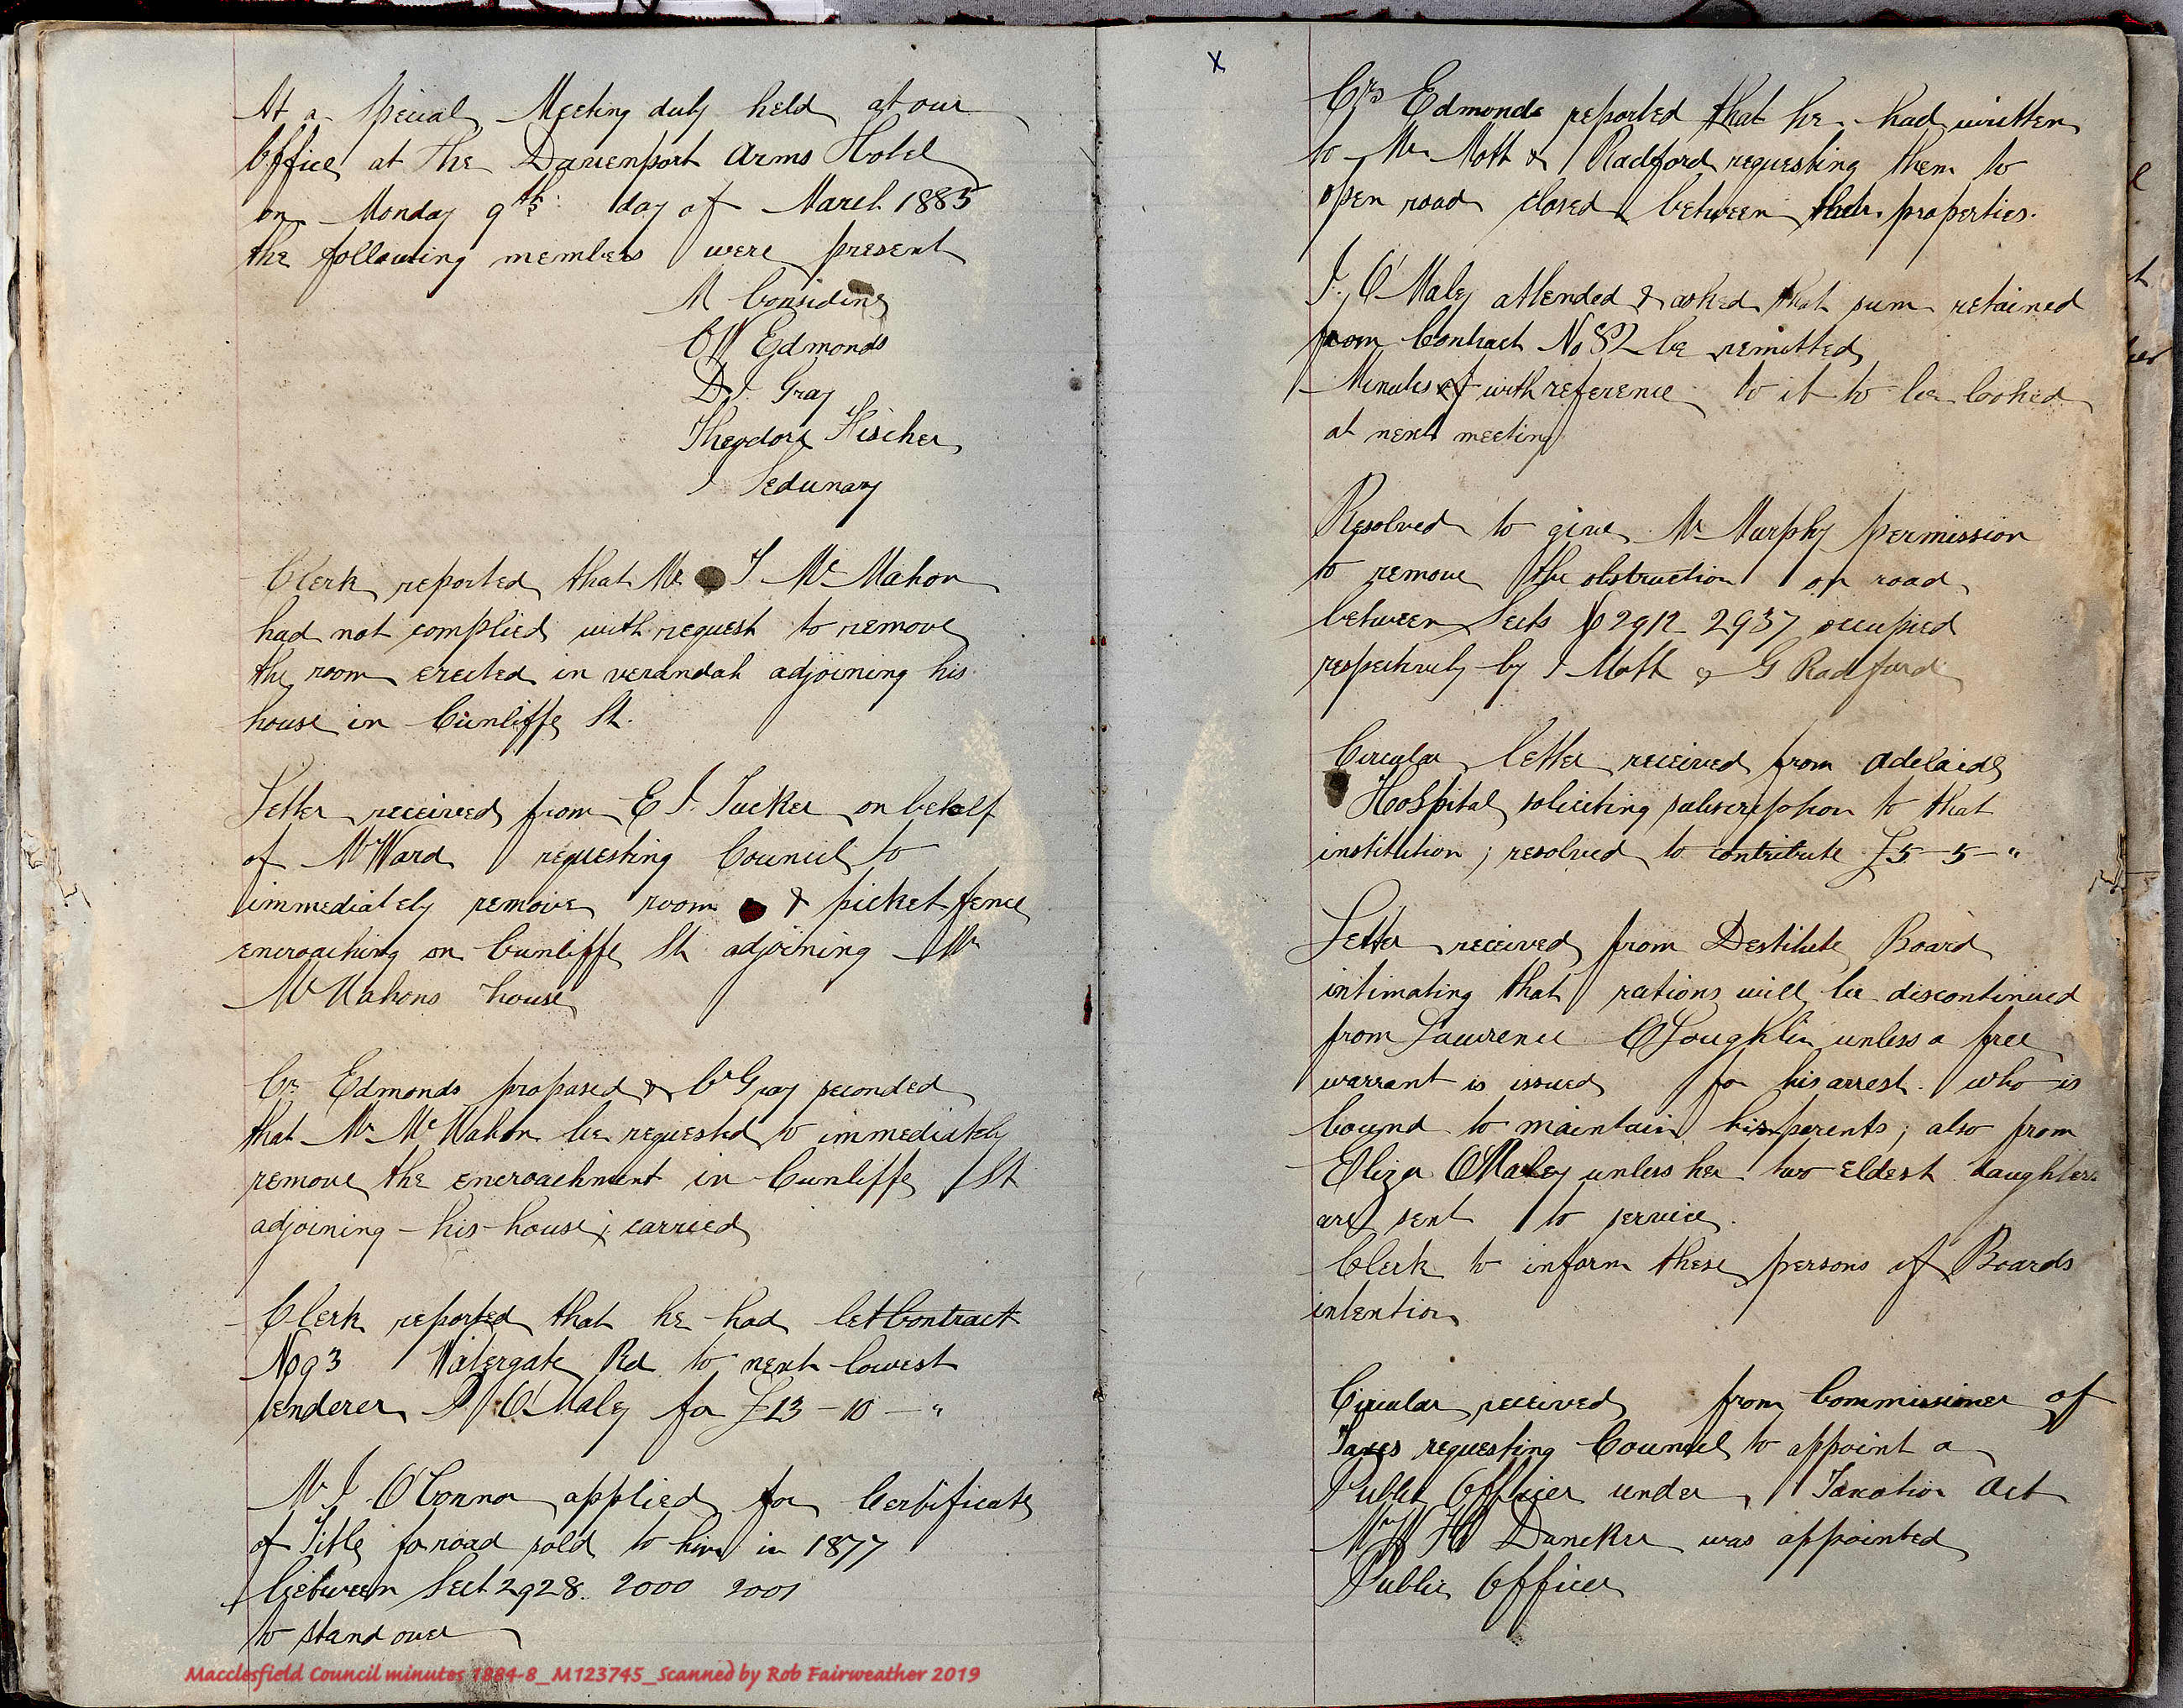 At a Special Meeting duly held at our
Office at the Davenport Arms Hotel
on Monday 9th day of March 1885
the following members were present
M Considine
CW Edmonds
D.J. Gray
Theodore Fischer
J Sedunary
Clerk reported that Mr T McMahon
had not complied with request to remove
the room erected in verandah adjoining his
house in Cunliffe St.
Letter received from E J. Tucker on behalf
of Mr Ward requesting Council to
immediately remove room & picket fence
encroaching on Cunliffe St adjoining Mr
McMahons house
Cr Edmonds proposed & Cr Gray seconded
that Mr McMahon be requested to immediately
remove the encroachment in Cunliffe St
adjoining his house; carried
Clerk reported that he had let Contract
No 93 Watergate Rd to next lowest
tenderer P O'Maley for £13-10-"
Mr J O'Connor applied for Certificate
of Title for road sold to him in 1877
between Sect 2928. 2000 2001
to stand over
x
Crs Edmonds reported that he had written
to Mr Mott & Radford requesting them to
open road closed between their properties.
J. O'Maley attended & asked that sum retained
from Contract No 82 be remitted
Minutes with reference to it to be looked
at next meeting
Resolved to give Mr Murphy permission
to remove the obstruction on road
between Sects 2912 2937 occupied
respectively by J Mott & G Radford
Circular letter received from Adelaide
Hospital soliciting subscription to that
institution; resolved to contribute £5-5-"
Letter received from Destitute Board
intimating that rations will be discontinued
from Lawrence O'Loughlin unless a free
warrant is issued for his arrest. who is
bound to maintain his parents; also from
Eliza O'Maley unless her two eldest daughters
are sent to service.
Clerk to inform these persons of Boards
intention
Circular received from Commissioner of
Taxes requesting Council to appoint a
Public Officer under Taxation Act
Mr W H Duncker was appointed
Public Officer
Macclesfield Council minutes 1884-8_M123745_Scanned by Rob Fairweather 2019